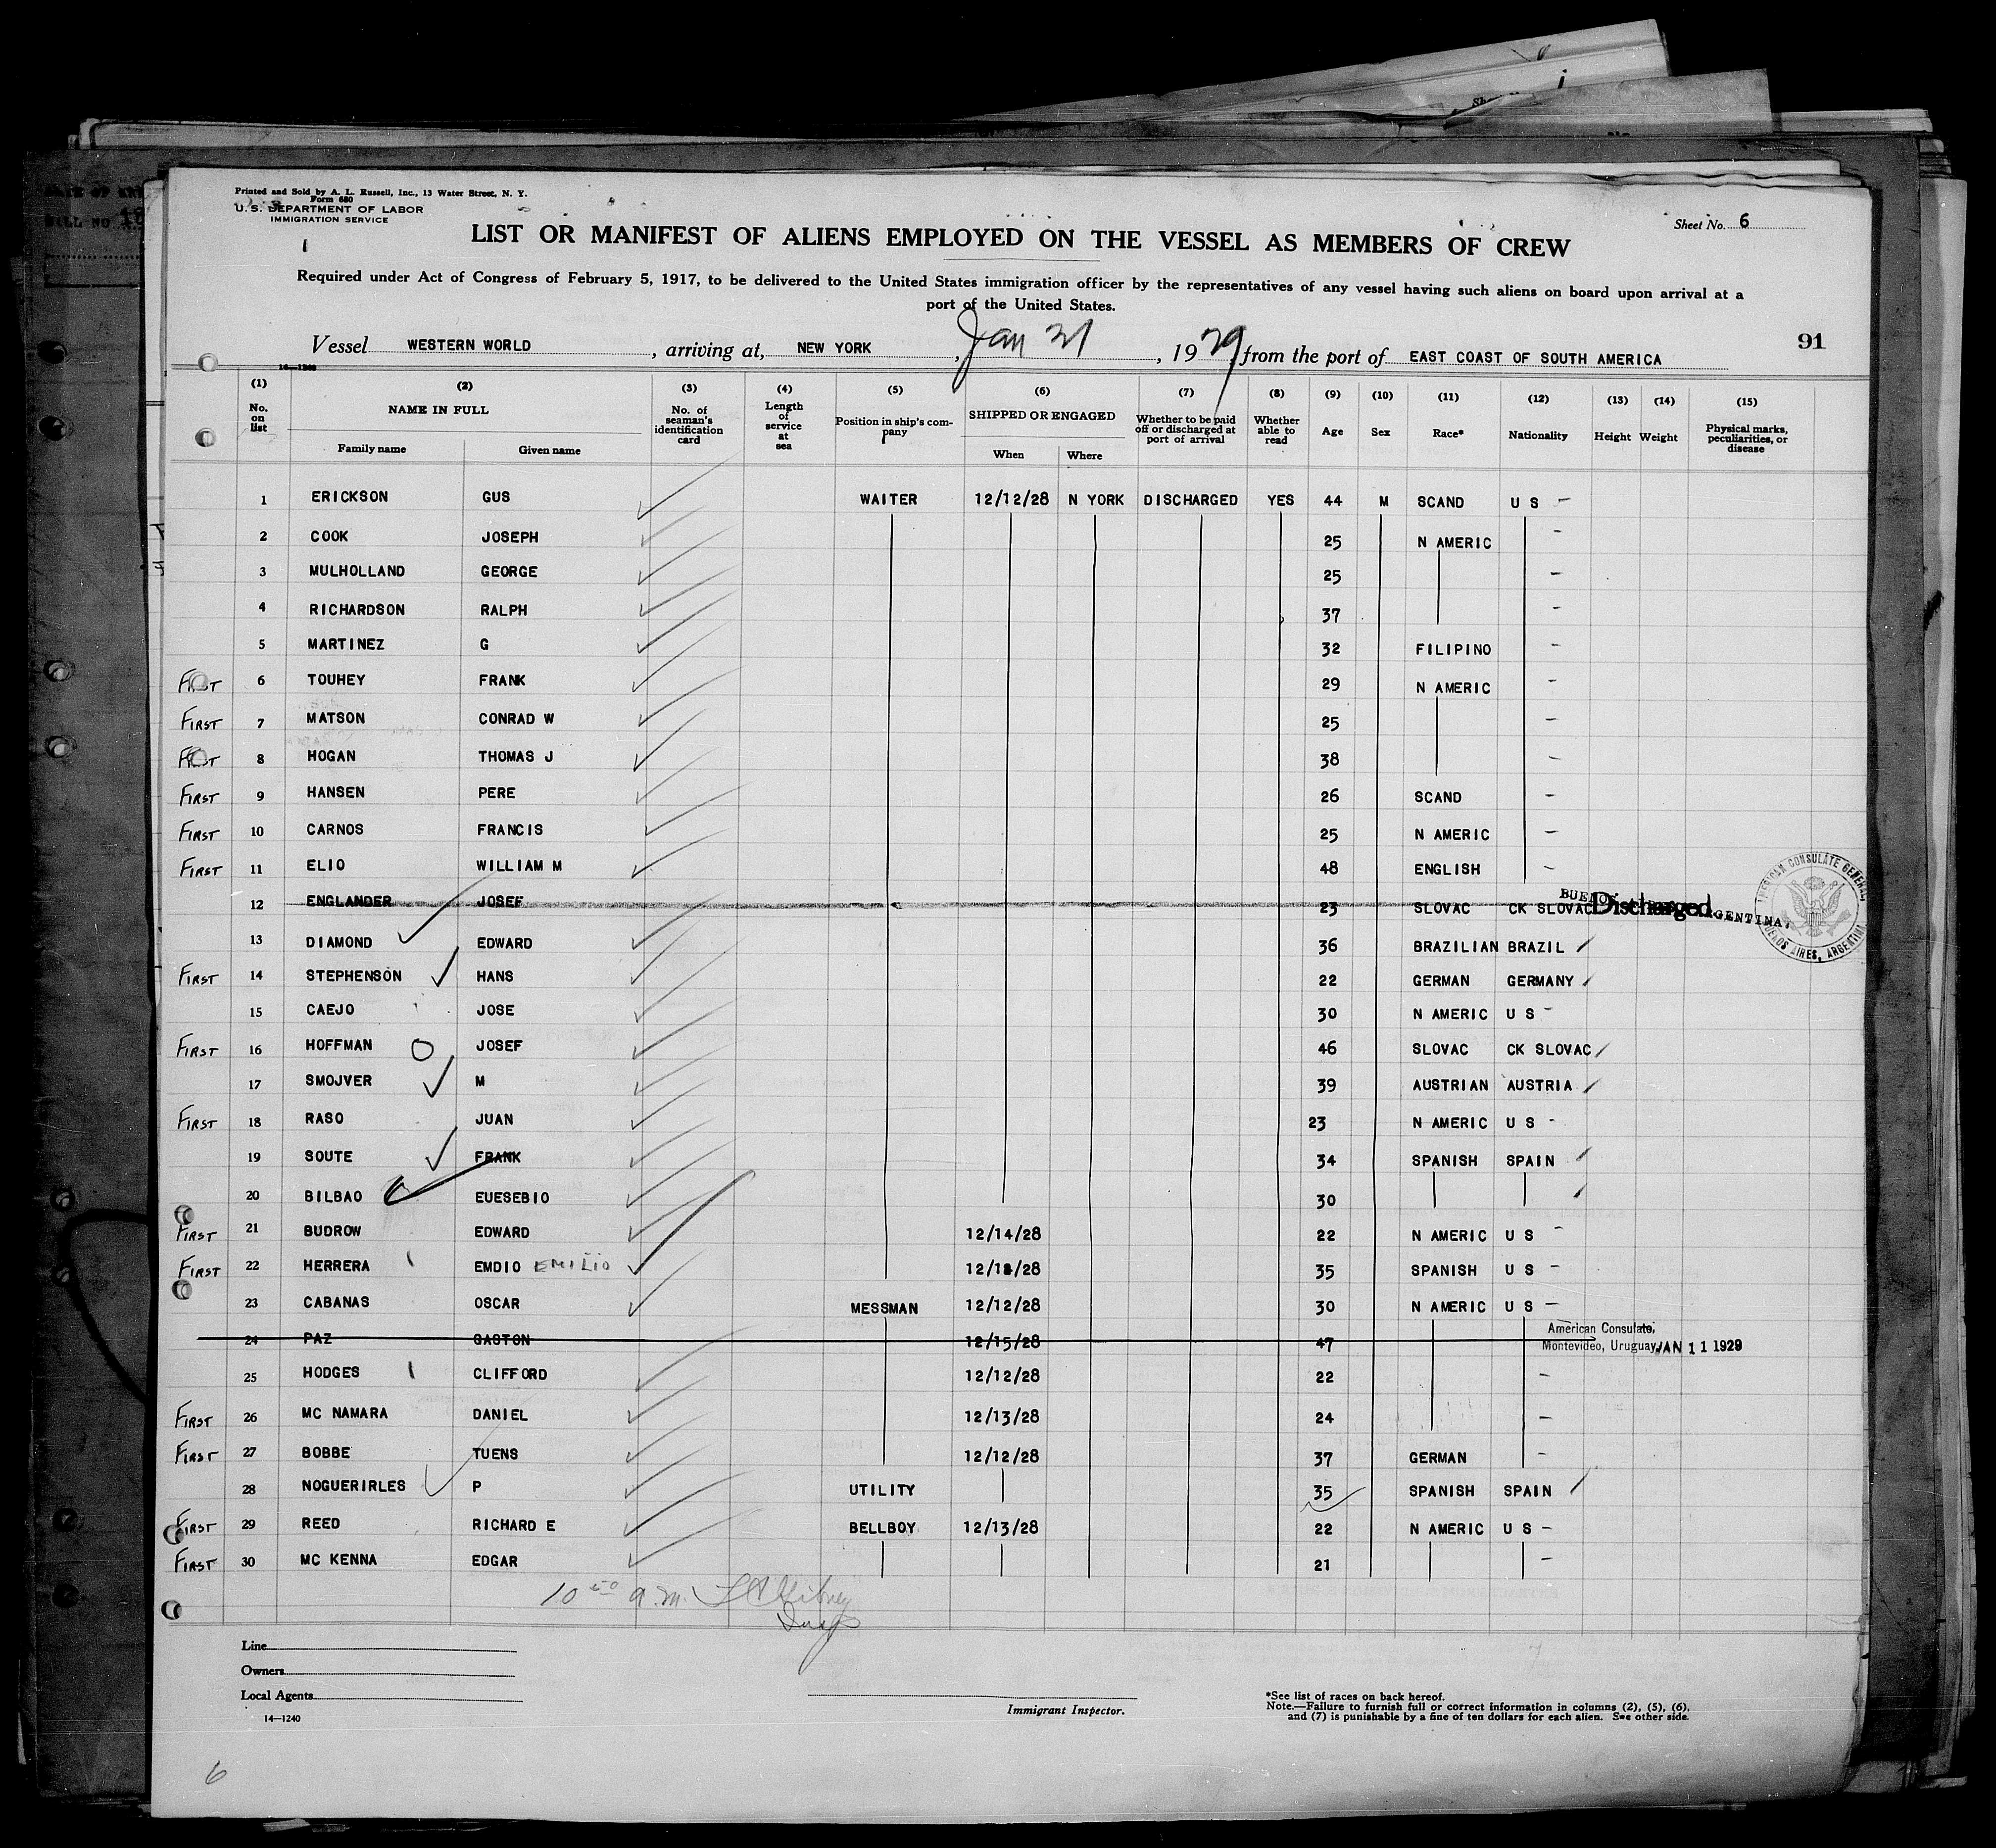 Printed and Sold by A. L. Russell, Inc., 13 Water Street, N. Y.
Form 680
U. S. DEPARTMENT OF LABOR
IMMIGRATION SERVICE
Sheet No. 6
LIST OR MANIFEST OF ALIENS EMPLOYED ON THE VESSEL AS MEMBERS OF CREW
Required under Act of Congress of February 5, 1917, to be delivered to the United States immigration officer by the representatives of any vessel having such aliens on board upon arrival at a
port of the United States.
91
Vessel WESTERN WORLD, arriving at, NEW YORK, Jan 31, 1929, from the port of EAST COAST OF SOUTH AMERICA
(1) (2) (3) (4) (5) (6) (7) (8) (9) (10) (11) (12) (13) (14) (15)
No. on list NAME IN FULL Family name Given name No. of seaman's identification card Length of service at sea Position in ship's company SHIPPED OR ENGAGED When Where Whether to be paid off or discharged at port of arrival Whether able to read Age Sex Race* Nationality Height Weight Physical marks, peculiarities, or disease
1 ERICKSON GUS WAITER 12/12/28 N YORK DISCHARGED YES 44 M SCAND U S –
2 COOK JOSEPH 25 N AMERIC –
3 MULHOLLAND GEORGE 25 –
4 RICHARDSON RALPH 37 –
5 MARTINEZ G 32 FILIPINO –
FIRST 6 TOUHEY FRANK 29 N AMERIC –
FIRST 7 MATSON CONRAD W 25 –
FIRST 8 HOGAN THOMAS J 38 –
FIRST 9 HANSEN PERE 26 SCAND –
FIRST 10 CARNOS FRANCIS 25 N AMERIC –
FIRST 11 ELIO WILLIAM M 48 ENGLISH –
12 ENGLANDER JOSEF 23 SLOVAC CK SLOVAC Discharged
AMERICAN CONSULATE GENERAL BUENOS AIRES, ARGENTINA
13 DIAMOND EDWARD 36 BRAZILIAN BRAZIL
FIRST 14 STEPHENSON HANS 22 GERMAN GERMANY
15 CAEJO JOSE 30 N AMERIC U S –
FIRST 16 HOFFMAN JOSEF 46 SLOVAC CK SLOVAC
17 SMOJVER M 39 AUSTRIAN AUSTRIA
FIRST 18 RASO JUAN 23 N AMERIC U S –
19 SOUTE FRANK 34 SPANISH SPAIN
20 BILBAO EUESEBIO 30
FIRST 21 BUDROW EDWARD 12/14/28 22 N AMERIC U S –
FIRST 22 HERRERA EMDIO EMILIO 12/12/28 35 SPANISH U S –
23 CABANAS OSCAR MESSMAN 12/12/28 30 N AMERIC U S –
24 PAZ GASTON 12/15/28 47 American Consulate,
Montevideo, Uruguay JAN 11 1929
25 HODGES CLIFFORD 12/12/28 22 –
FIRST 26 MC NAMARA DANIEL 12/13/28 24 –
FIRST 27 BOBBE TUENS 12/12/28 37 GERMAN –
28 NOGUERIRLES P UTILITY 35 SPANISH SPAIN
FIRST 29 REED RICHARD E BELLBOY 12/13/28 22 N AMERIC U S –
FIRST 30 MC KENNA EDGAR 21 –
10 50 a.m.
Line
Owners
Local Agents
14—1240
Immigrant Inspector.
*See list of races on back hereof.
Note.—Failure to furnish full or correct information in columns (2), (5), (6),
and (7) is punishable by a fine of ten dollars for each alien. See other side.
6